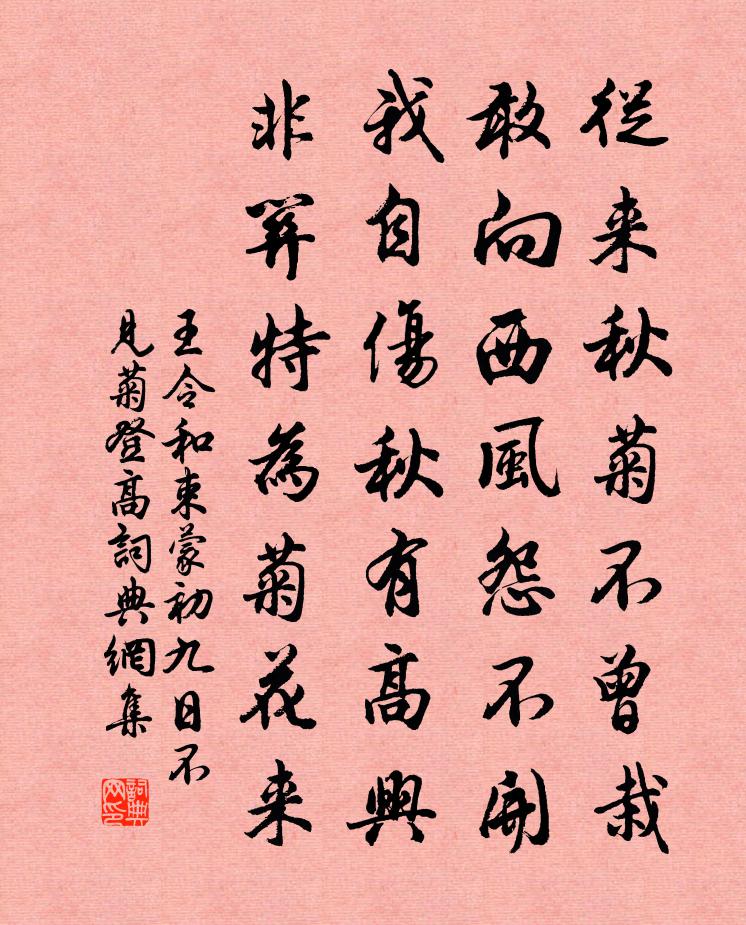 從来秋菊不曾栽
敢向西風怨不開
我自傷秋有高興
非關特為菊花来
王令和束蒙初九日不
見菊登高詞典網集
詞典网印